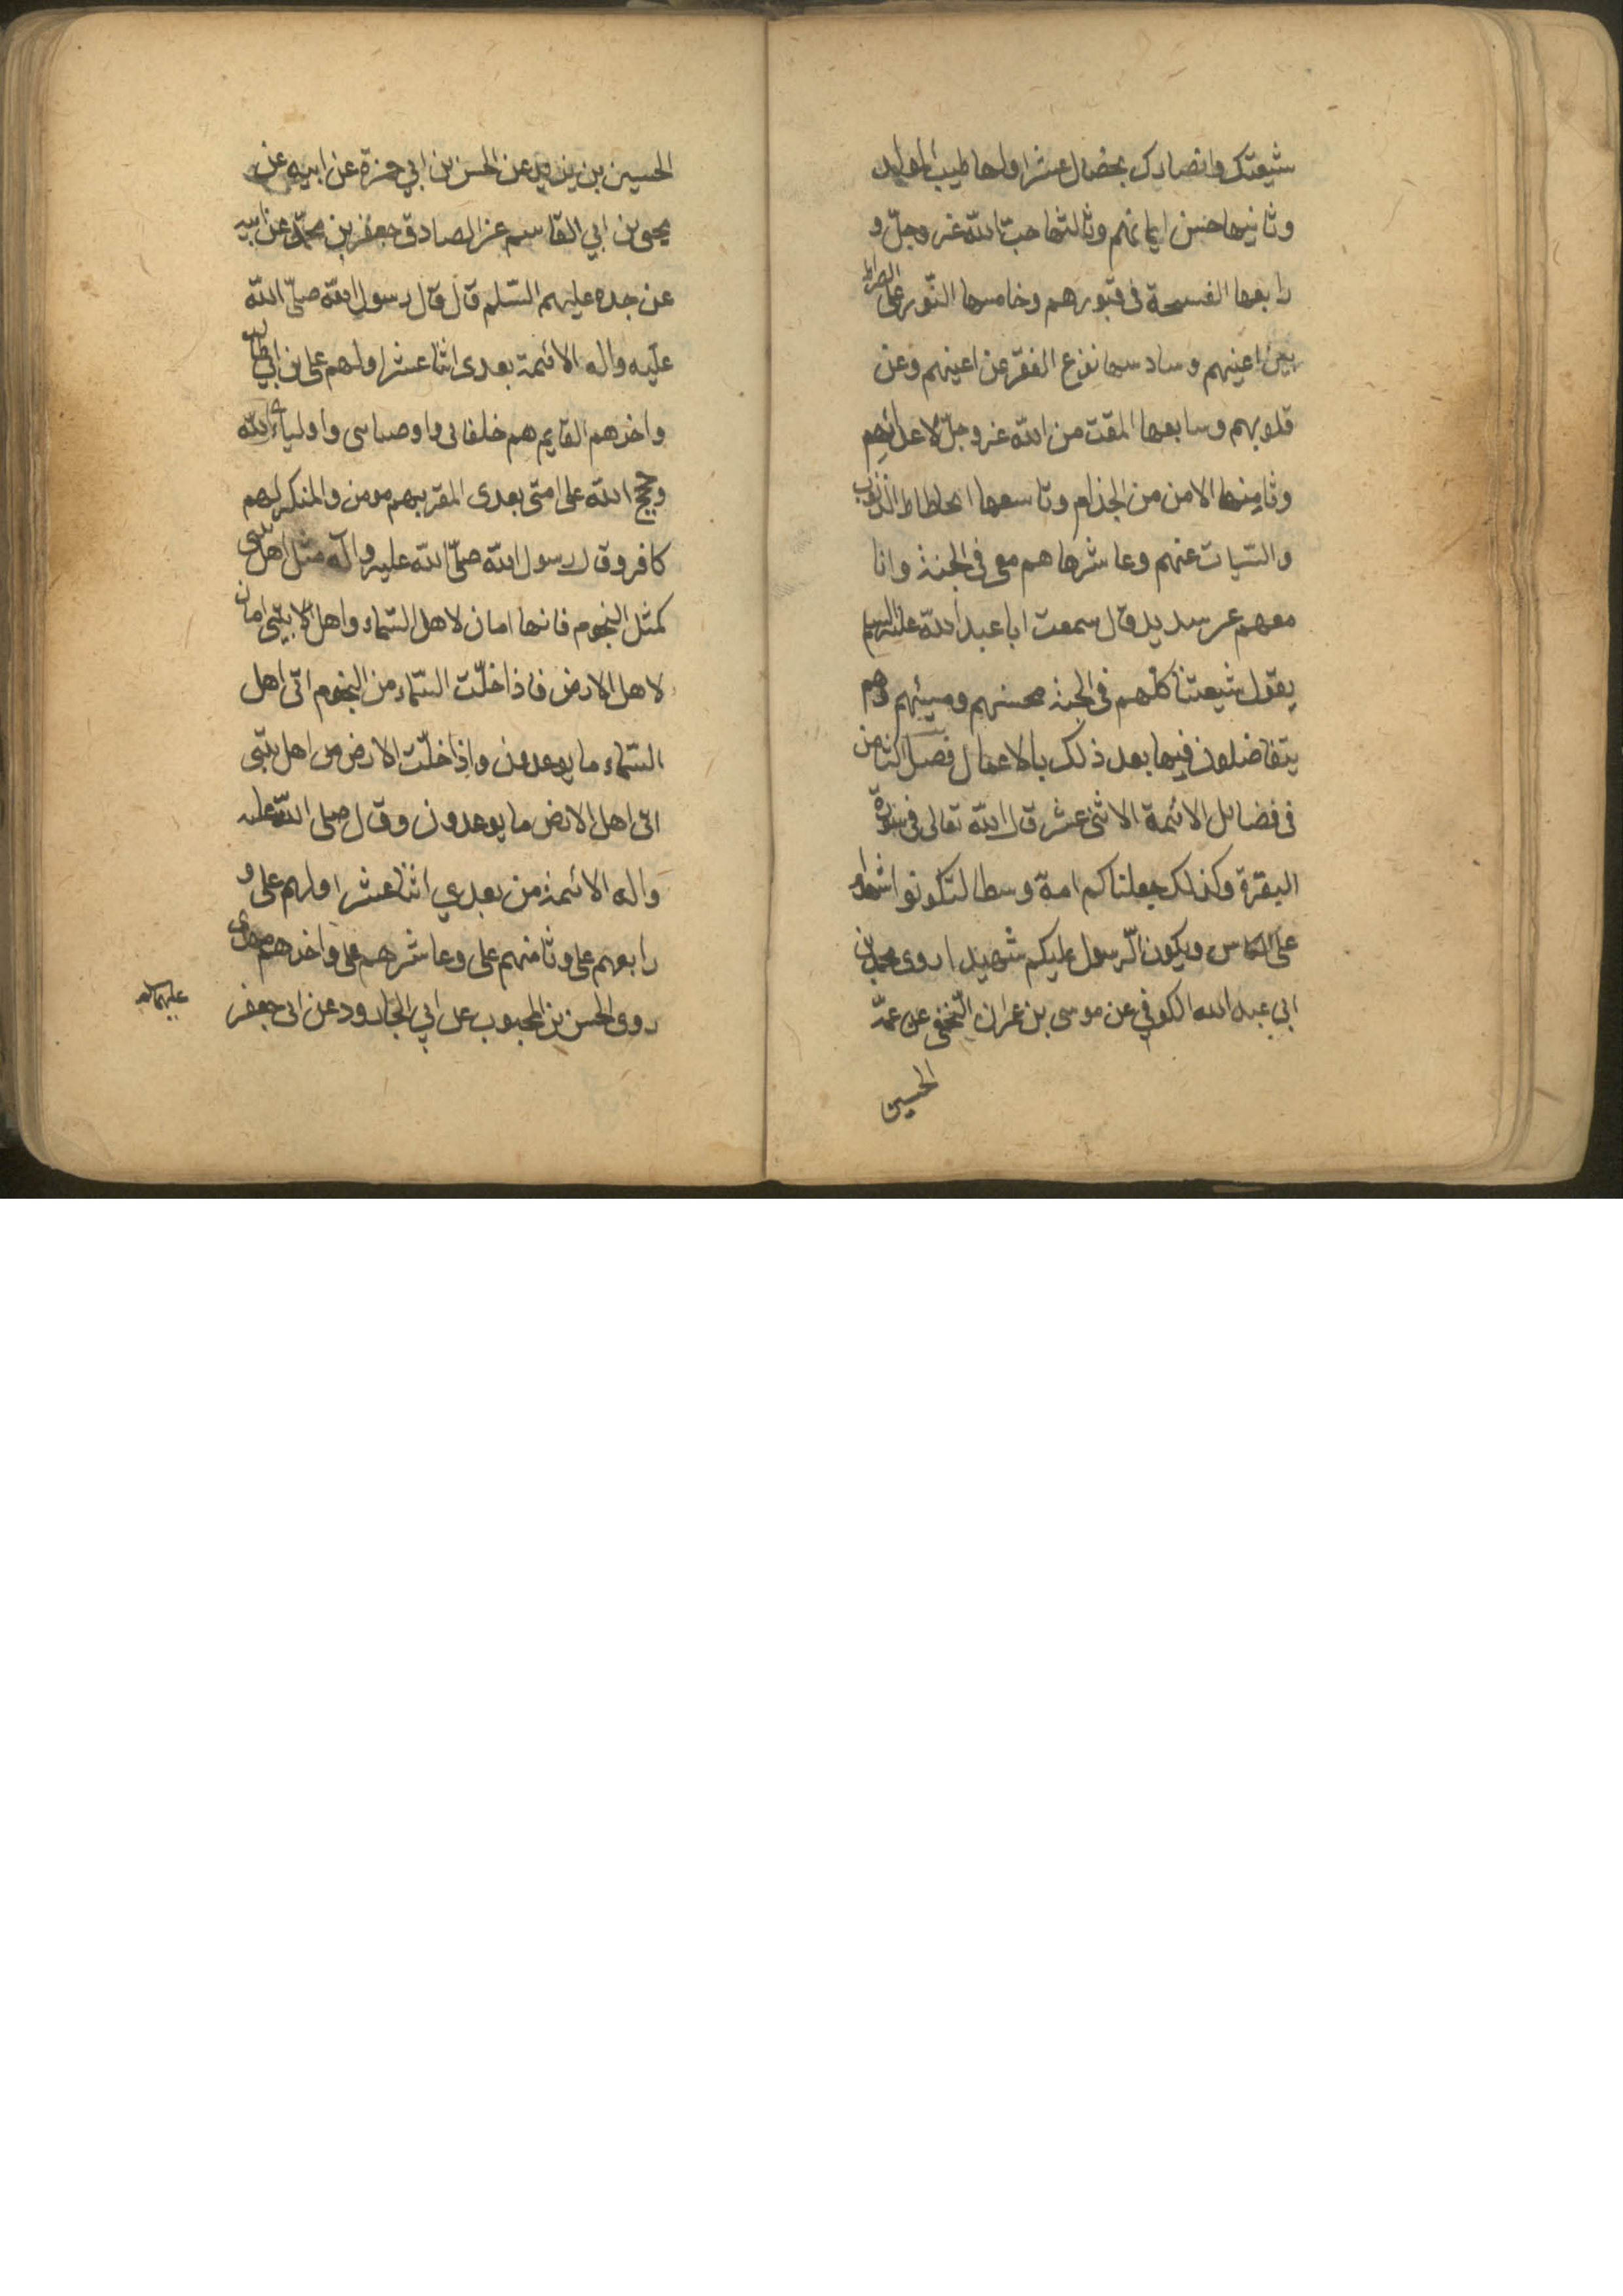 شيعتك وانصارك بخصال عشر اولها طيب المولد
وثانيها حسن ايمانهم وثالثها حب الله عز وجل و
رابعها الفسحة فى قبورهم وخامسها النور على الصراط
بين اعينهم وسادسها نزع الفقر عن اعينهم وعن
قلوبهم وسابعها المقت من الله عز وجل لاعدائهم
وثامنها الامن من الجذام وتاسعها انحطاط الذنوب
والسيات عنهم وعاشرها هم معى فى الجنة وانا
معهم عن سدير قال سمعت ابا عبد الله عليه السلم
يقول شيعتنا كلهم فى الجنة محسنهم ومسيئهم وهم
يتفاضلون فيها بعد ذلك بالاعمال فصل الثامن
فى فضائل الائمة الاثنى عشر قال الله تعالى فى سورة
البقرة وكذلك جعلناكم امة وسطا لتكونوا شهداء
على الناس ويكون الرسول عليكم شهيدا روى محمد بن
ابى عبد الله الكوفي عن موسى بن عمران النخعى عن عمه
الحسين
الحسين بن يزيد عن الحسن بن ابي حمزة عن ابيه عن
يحيى بن ابي القاسم عن الصادق جعفر بن محمد عن ابيه
عن جده عليهم السلم قال قال رسول الله صلى الله
عليه واله الائمة بعدى اثنا عشر اولهم على بن ابي طالب
واخرهم القايم هم خلفائى واوصيائى واولياء الله
وحجج الله على امتى بعدى المقر بهم مومن والمنكر لهم
كافر وقال رسول الله صلى الله عليه وآله مثل اهل بيتى
كمثل النجوم فانها امان لاهل السماء واهل بيتى امان
لاهل الارض فاذا خلت السماء من النجوم اتى اهل
السماء ما يوعدون واذا خلت الارض من اهل بيتى
اتى اهل الارض ما يوعدون وقال صلى الله عليه
واله الائمة من بعدي اثنا عشر اولهم على و
رابعهم على وثامنهم على وعاشرهم على واخرهم مهدى
روى الحسن بن المحبوب عن ابي الجارود عن ابى جعفر
عليهما السلم